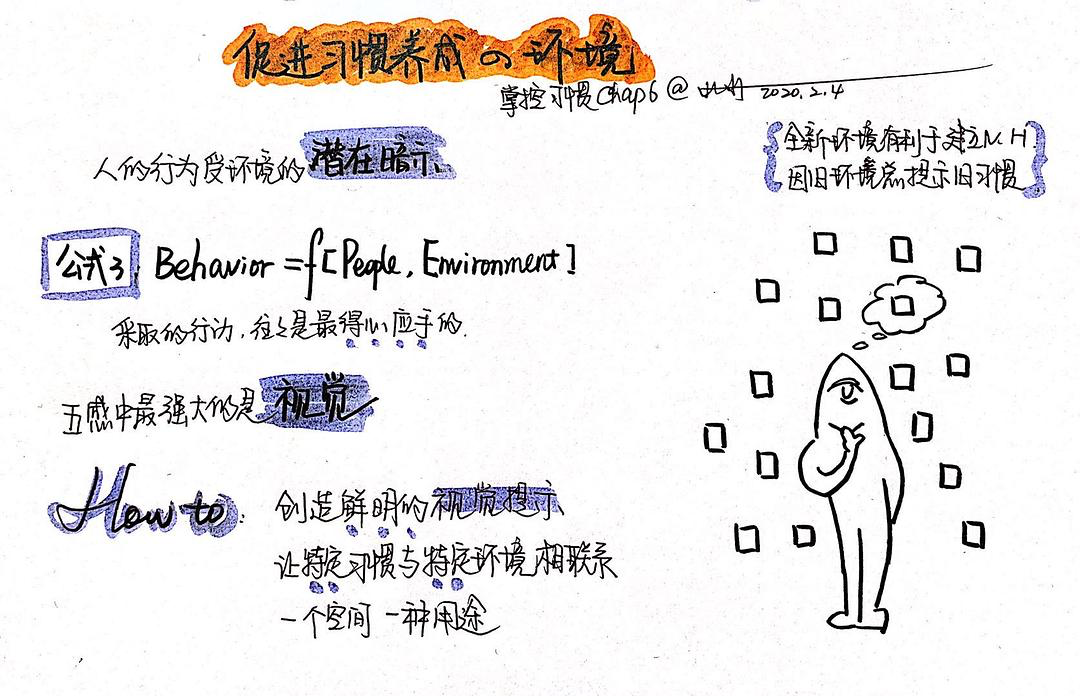 促进习惯养成の环境
掌控习惯Chap6 @ 2020.2.4
人的行为受环境的潜在暗示
{全新环境有利于建立N.H.
因旧环境总提示旧习惯}
公式3: Behavior = f[People, Environment]
采取的行为,往往是最得心应手的.
五感中最强大的是视觉
How to: 创造鲜明的视觉提示
让特定习惯与特定环境相联系
一个空间 一种用途